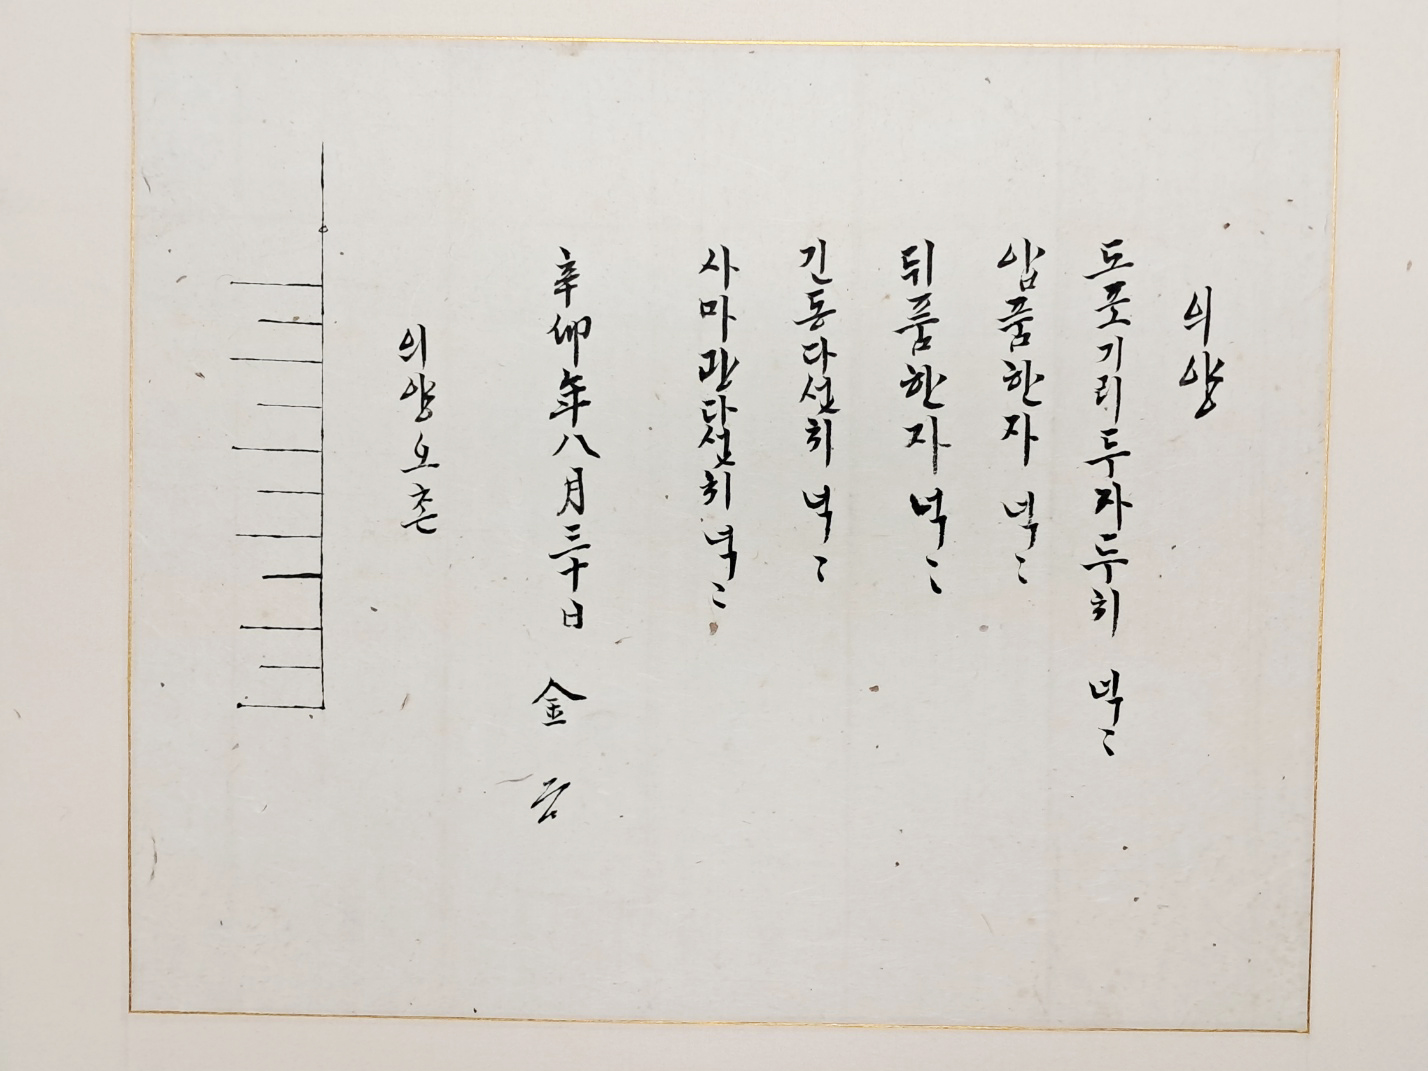 의양
도포기리두자두치 넉〻
압품한자 넉〻
뒤품한자 넉〻
긴동다섯치 넉〻
사마관다섯치넉〻
辛卯年八月三十日 金
의양오촌